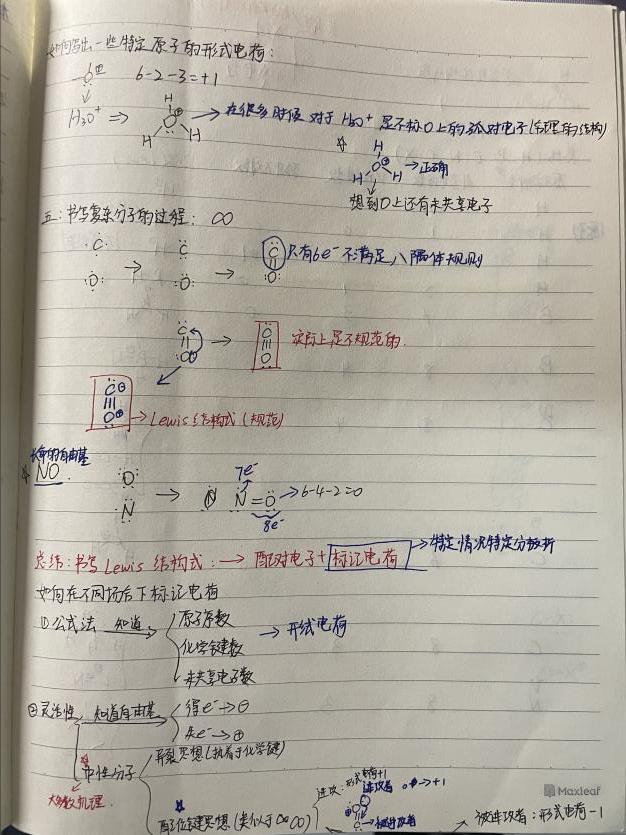 如何写出一些特定原子的形式电荷:
-O⊕ 6-2-3=+1
H₃O⁺ ⇒ H O⊕ H H → 在很多时候 对于 H₃O⁺ 是不标O上的孤对电子(合理的结构)
H O⊕ H H → 正确
想到O上还有未共享电子
五:书写复杂分子的过程: CO
C → C → C 只有6e⁻ 不满足八隅体规则
O O O
C≡O → C≡O 实际上是不规范的.
C⊖≡O⊕ → Lewis结构式(规范)
长命的自由基
☆ NO. O N → N=O → 6-4-2=0
7e⁻
8e⁻
总结:书写Lewis 结构式: → 配对电子+标记电荷 → 特定情况特定分析
如何在不同场合下标记电荷
①公式法 知道 原子序数
化学键数 → 形式电荷
未共享电子数
②灵活性 知道自由基 得e⁻→⊖
失e⁻→⊕
☆ 中性分子 异裂思想(执着于化学键)
大多数机理.
☆ 配位键思想(类似于CO)
进攻: 形式电荷+1
进攻者 →+1
被进攻者
被进攻者:形式电荷-1
Maxleaf